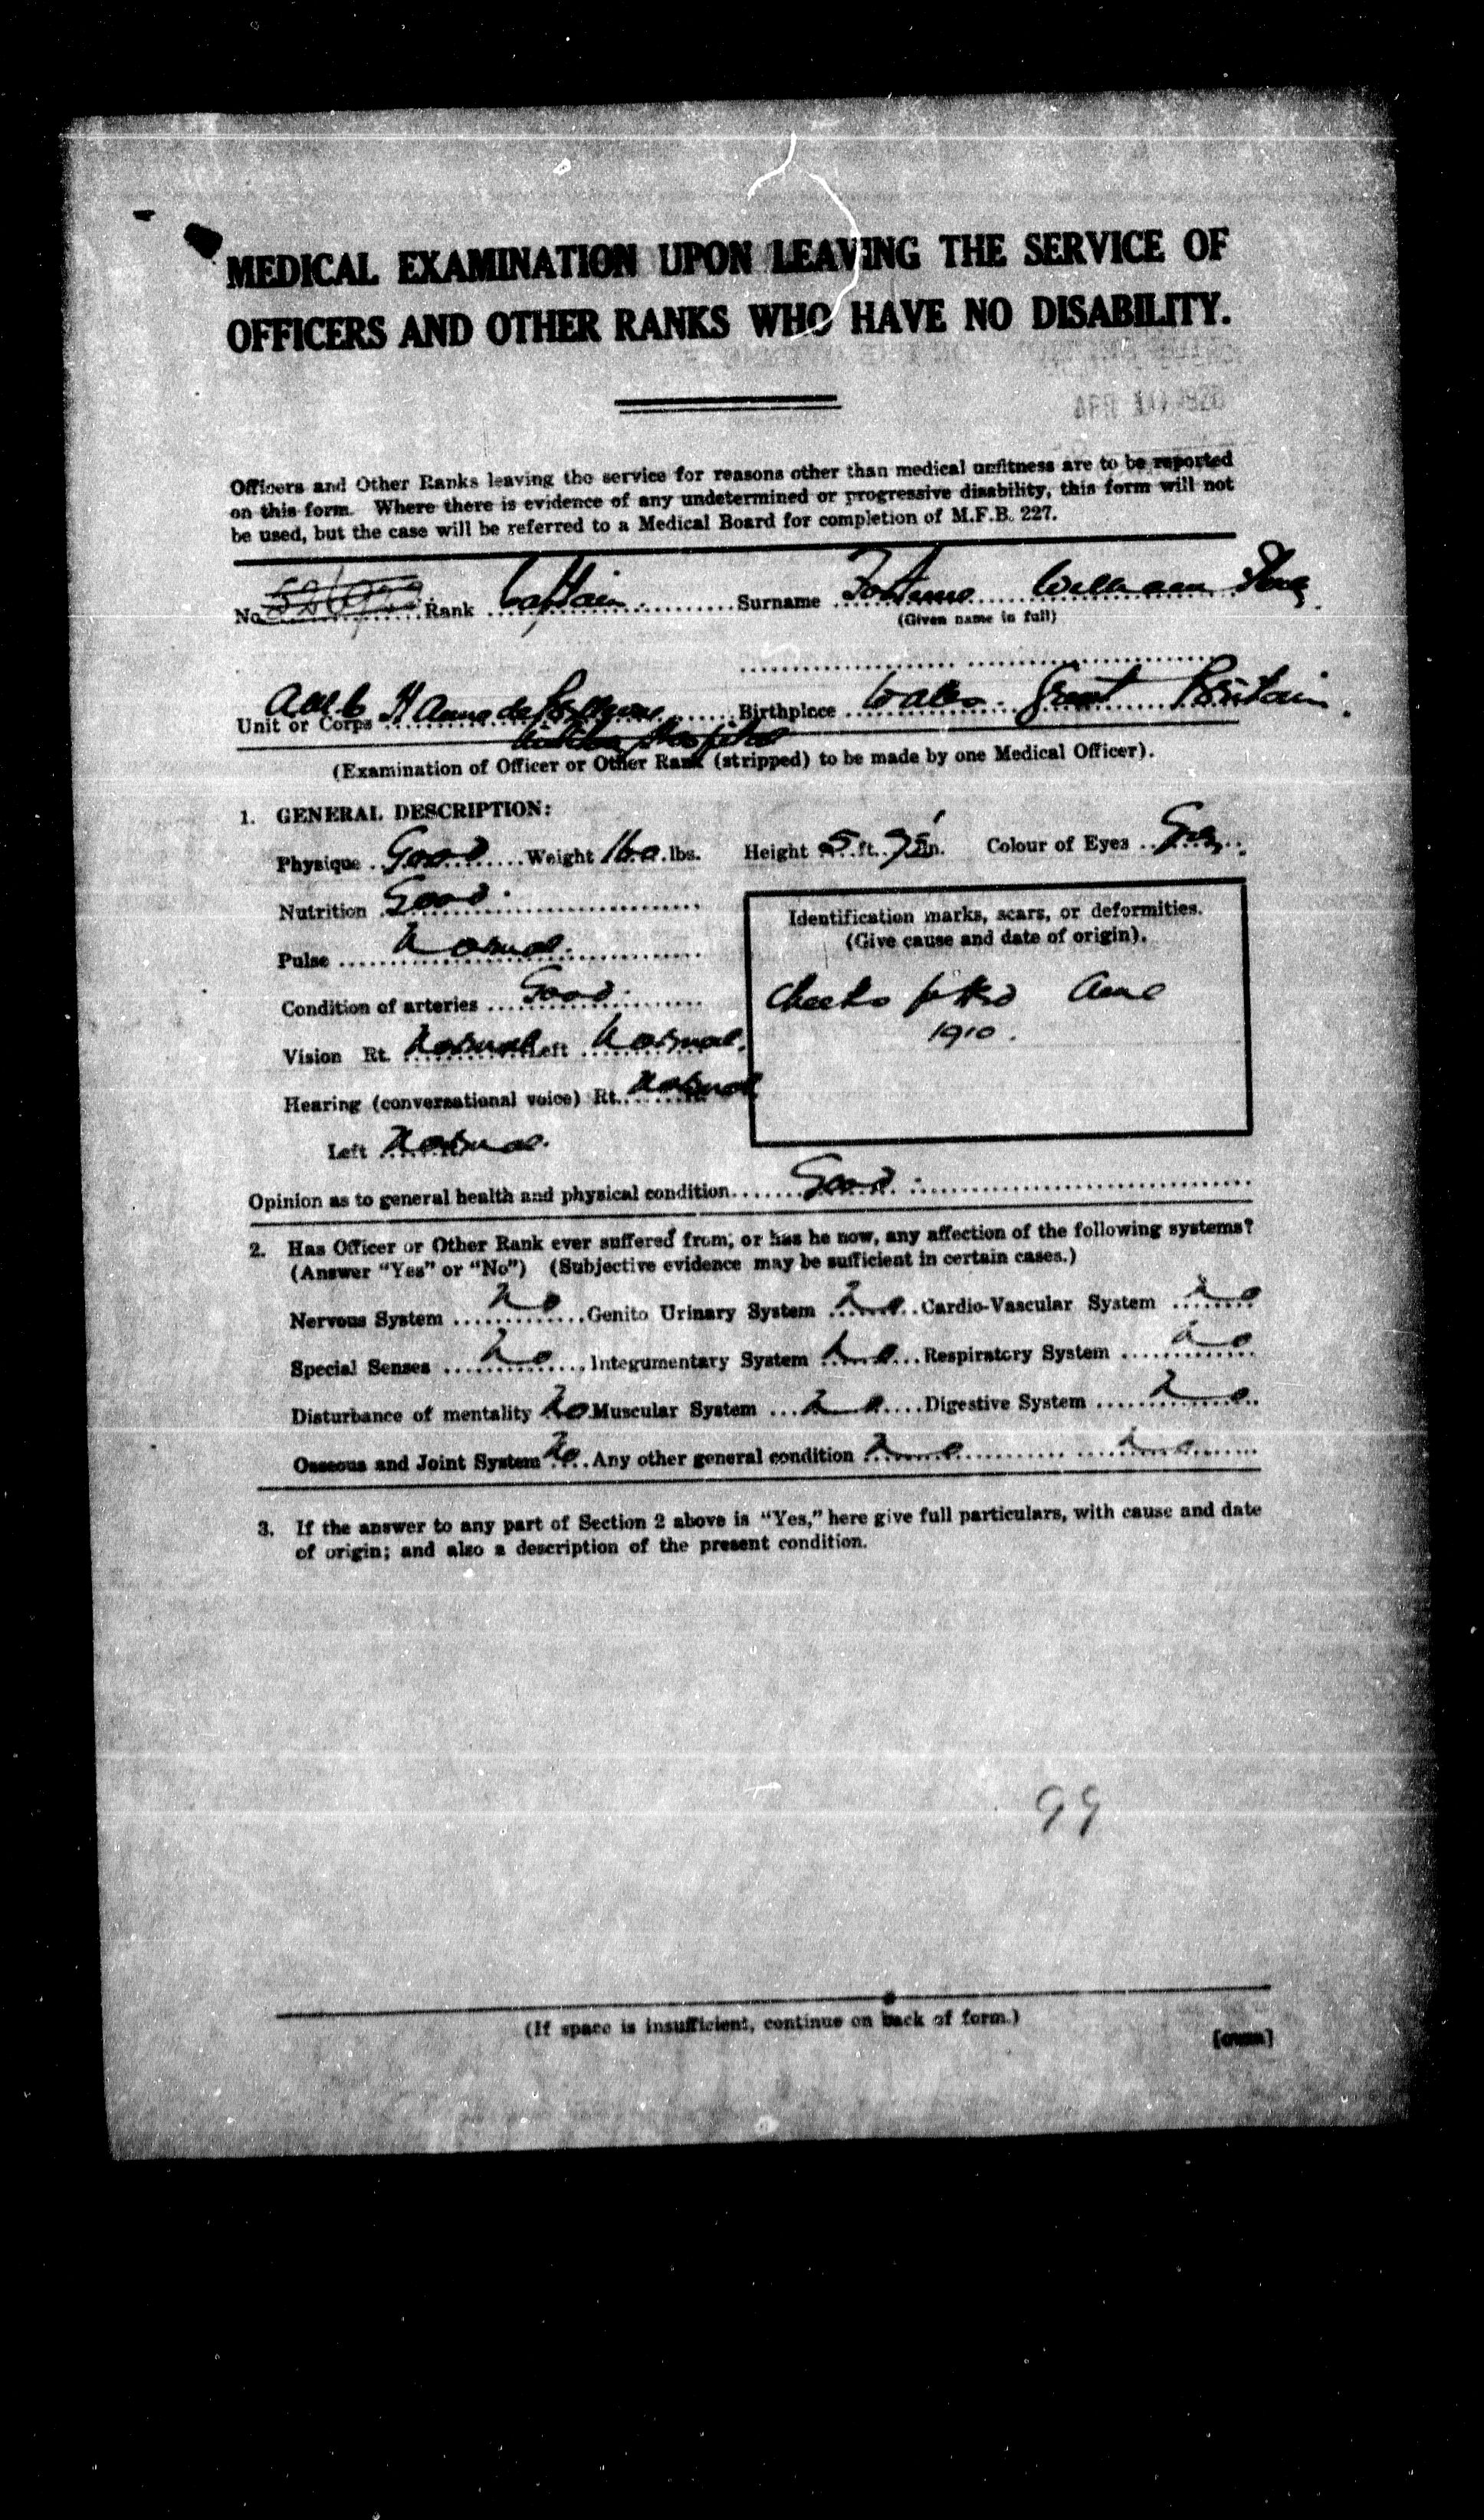 MEDICAL EXAMINATION UPON LEAVING THE SERVICE OF
OFFICERS AND OTHER RANKS WHO HAVE NO DISABILITY.
Officers and Other Ranks leaving the service for reasons other than medical unfitness are to be reported
on this form. Where there is evidence of any undetermined or progressive disability, this form will not
be used, but the case will be referred to a Medical Board for completion of M.F.B. 227.
No. Rank Captain Surname William
(Given name in full)
Unit or Corps St Anne de Birthplace Wales. Great Britain.
Hospital
(Examination of Officer or Other Rank (stripped) to be made by one Medical Officer).
1. GENERAL DESCRIPTION:
Physique Good Weight 160 lbs. Height 5 ft. in. Colour of Eyes
Nutrition Good.
Identification marks, scars, or deformities.
(Give cause and date of origin).
Pulse Normal.
Condition of arteries Good.
Cheeks pitted Acne
1910.
Vision Rt. Normal Left Normal.
Hearing (conversational voice) Rt. Normal
Left Normal.
Opinion as to general health and physical condition Good.
2. Has Officer or Other Rank ever suffered from, or has he now, any affection of the following systems?
(Answer "Yes" or "No") (Subjective evidence may be sufficient in certain cases.)
Nervous System No Genito Urinary System No Cardio-Vascular System No
Special Senses No Integumentary System No Respiratory System No
Disturbance of mentality No Muscular System No Digestive System No
Osseous and Joint System No Any other general condition
3. If the answer to any part of Section 2 above is "Yes," here give full particulars, with cause and date
of origin; and also a description of the present condition.
99
(If space is insufficient, continue on back of form.)
[OVER]